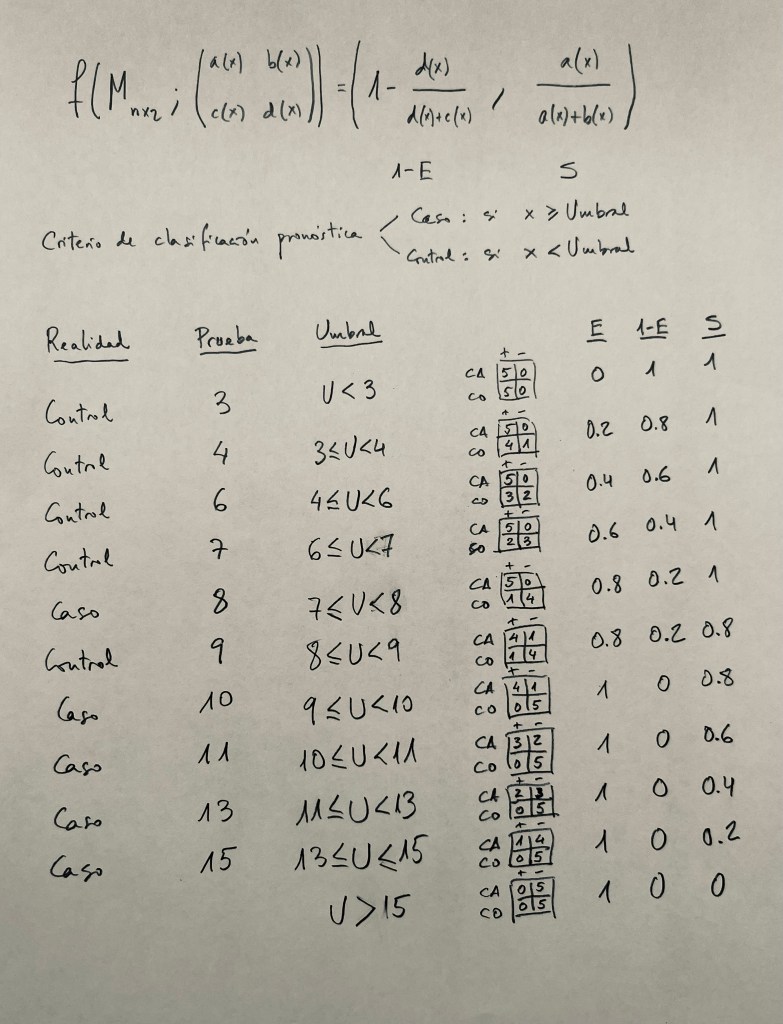 f(M_{nx2}; (a(x) b(x) / c(x) d(x))) = (1 - d(x)/(d(x)+c(x)), a(x)/(a(x)+b(x)))
1-E S
Criterio de clasificación pronóstica
Caso: si x ≥ Umbral
Control: si x < Umbral
Realidad Prueba Umbral E 1-E S
+ -
Control 3 U<3 CA 5 0 0 1 1
CO 5 0
+ -
Control 4 3≤U<4 CA 5 0 0.2 0.8 1
CO 4 1
+ -
Control 6 4≤U<6 CA 5 0 0.4 0.6 1
CO 3 2
+ -
Control 7 6≤U<7 CA 5 0 0.6 0.4 1
2 3
+ -
Caso 8 7≤U<8 CA 5 0 0.8 0.2 1
CO 1 4
+ -
Control 9 8≤U<9 CA 4 1 0.8 0.2 0.8
CO 1 4
+ -
Caso 10 9≤U<10 CA 4 1 1 0 0.8
CO 0 5
+ -
Caso 11 10≤U<11 CA 3 2 1 0 0.6
CO 0 5
+ -
Caso 13 11≤U<13 CA 2 3 1 0 0.4
CO 0 5
+ -
Caso 15 13≤U≤15 CA 1 4 1 0 0.2
CO 0 5
+ -
U>15 CA 0 5 1 0 0
CO 0 5